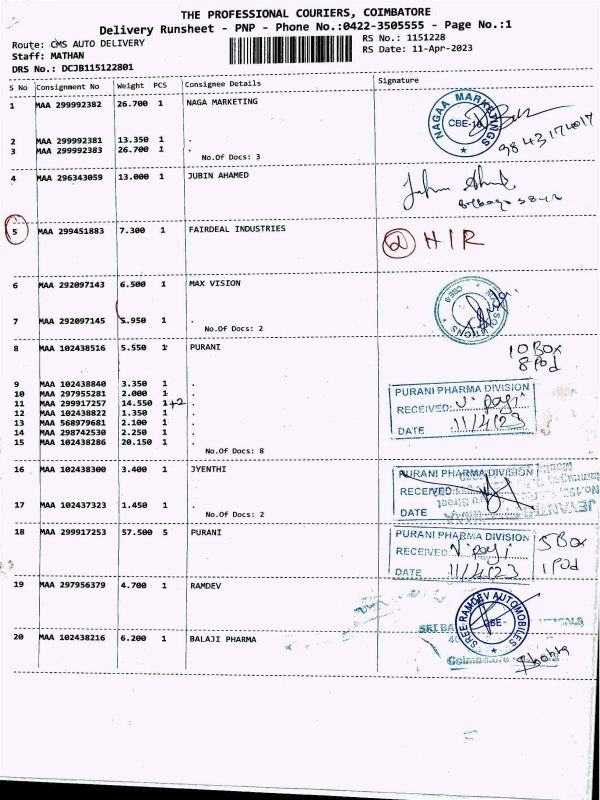 THE PROFESSIONAL COURIERS, COIMBATORE
Delivery Runsheet - PNP - Phone No.:0422-3505555 - Page No.:1
Route: CMS AUTO DELIVERY
RS No.: 1151228
Staff: MATHAN
RS Date: 11-Apr-2023
DRS No.: DCJB115122801
S No Consignment No Weight PCS Consignee Details Signature
1 MAA 299992382 26.700 1 NAGA MARKETING
NAGAA MARKETINGS
9843174017
2 MAA 299992381 13.350 1 .
3 MAA 299992383 26.700 1 .
No.Of Docs: 3
4 MAA 296343059 13.000 1 JUBIN AHAMED
5 MAA 299451883 7.300 1 FAIRDEAL INDUSTRIES
HIR
6 MAA 292097143 6.500 1 MAX VISION
7 MAA 292097145 5.950 1 .
No.Of Docs: 2
8 MAA 102438516 5.550 1 PURANI
10 Box
8 Pod
9 MAA 102438840 3.350 1 .
10 MAA 297955281 2.000 1 .
11 MAA 299917257 14.550 1+2 .
12 MAA 102438822 1.350 1 .
13 MAA 568979681 2.100 1 .
14 MAA 298742530 2.250 1 .
15 MAA 102438286 20.150 1 .
No.Of Docs: 8
PURANI PHARMA DIVISION
RECEIVED:
DATE 11/4/23
16 MAA 102438300 3.400 1 JYENTHI
17 MAA 102437323 1.450 1 .
No.Of Docs: 2
PURANI PHARMA DIVISION
RECEIVED:
DATE
18 MAA 299917253 57.500 5 PURANI
PURANI PHARMA DIVISION
RECEIVED:
DATE 11/4/23
5 Box
1 Pod
19 MAA 297956379 4.700 1 RAMDEV
SREE RAMDEV AUTOMOBILES
CBE-
20 MAA 102438216 6.200 1 BALAJI PHARMA
Coimbatore